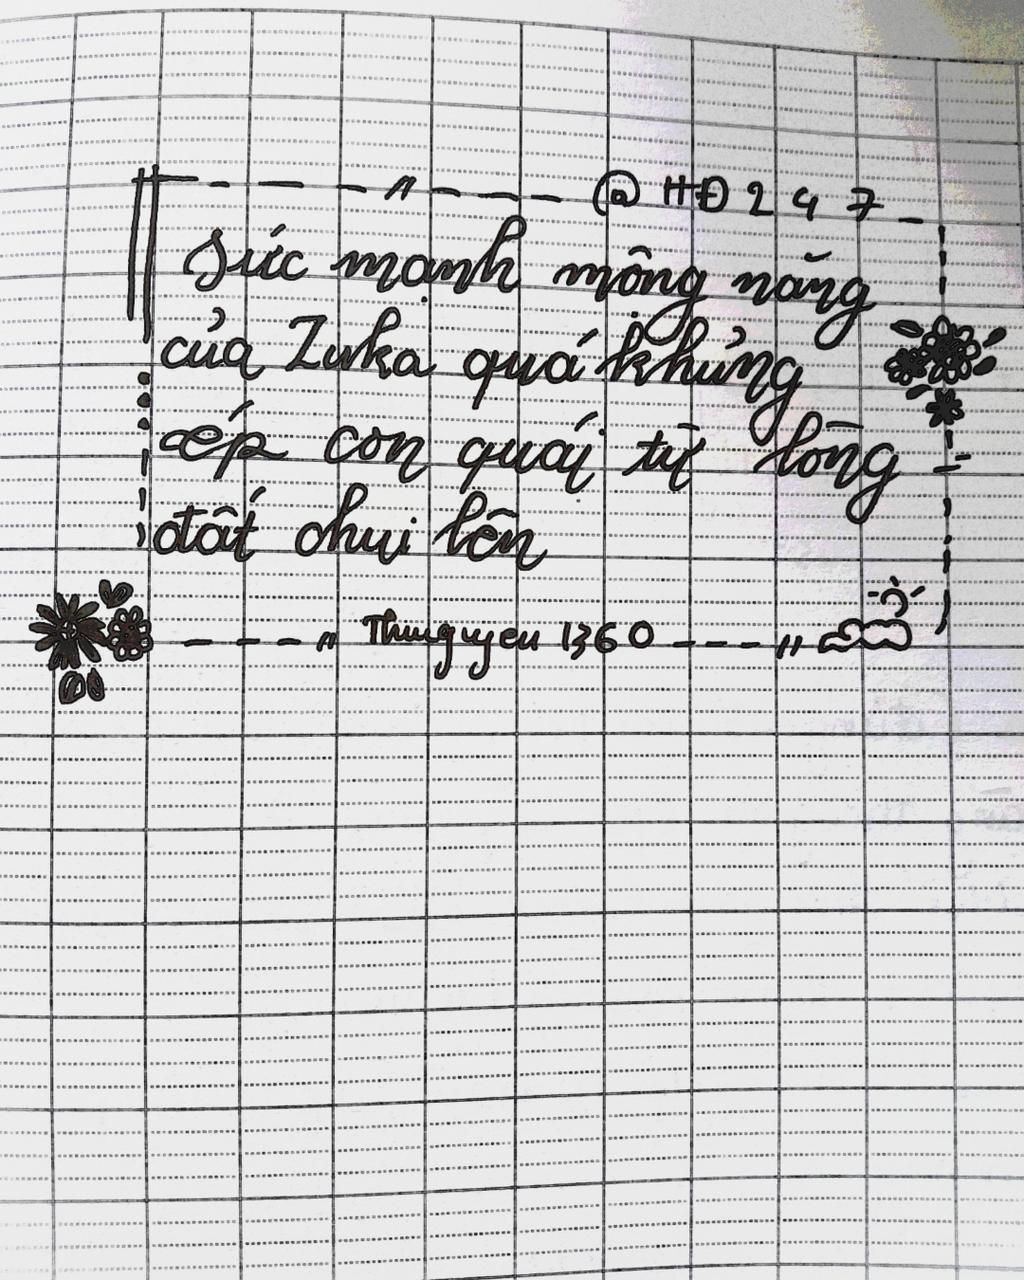 @ HĐ 247
Sức mạnh mông năng
của Zuka quá khủng
ép con quái từ lòng
đất chui lên
Thunguyen 1360